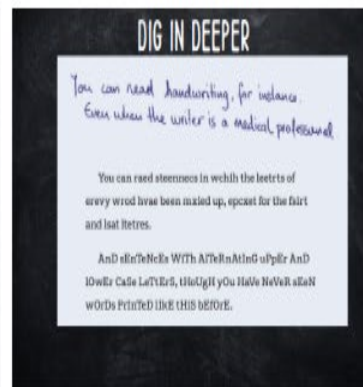 DIG IN DEEPER
You can read handwriting, for instance.
Even when the writer is a medical professional
You can raed steennecs in wchih the leetrts of
erevy wrod hvae been mxied up, epcxet for the fsirt
and lsat ltetres.
AnD sEnTeNcEs WiTh AlTeRnAtInG uPpEr AnD
lOwEr CaSe LeTtErS, tHoUgH yOu HaVe NeVeR sEeN
wOrDs PrInTeD lIkE tHiS bEfOrE.